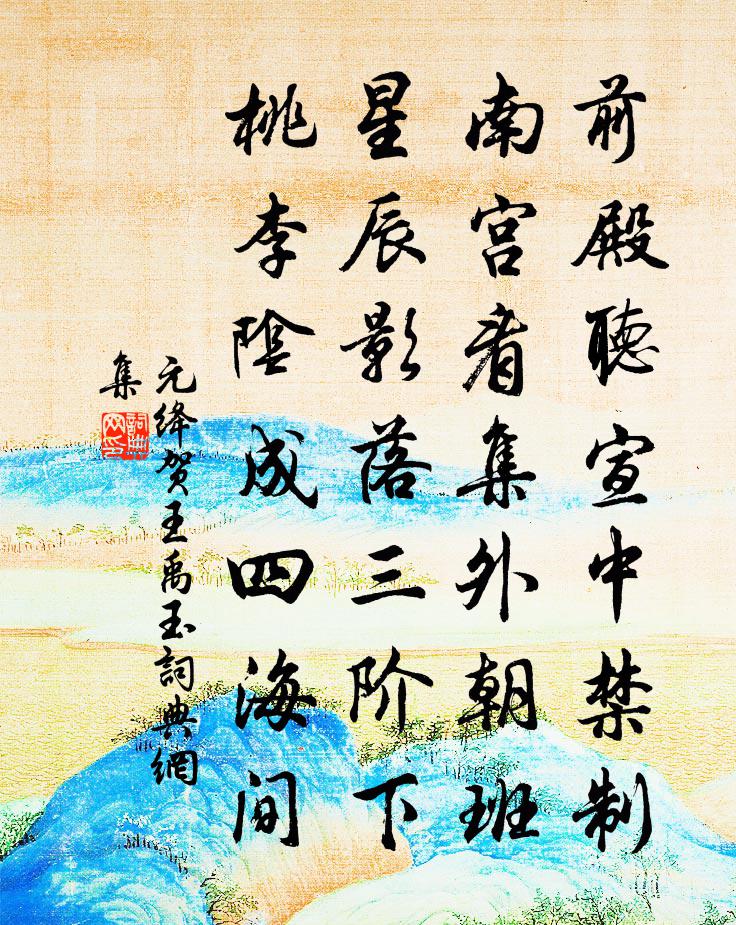 前殿聽宣中禁制
南宫看集外朝班
星辰影落三阶下
桃李陰成四海间
元绛贺王禹玉詞典網
集
詞典
网